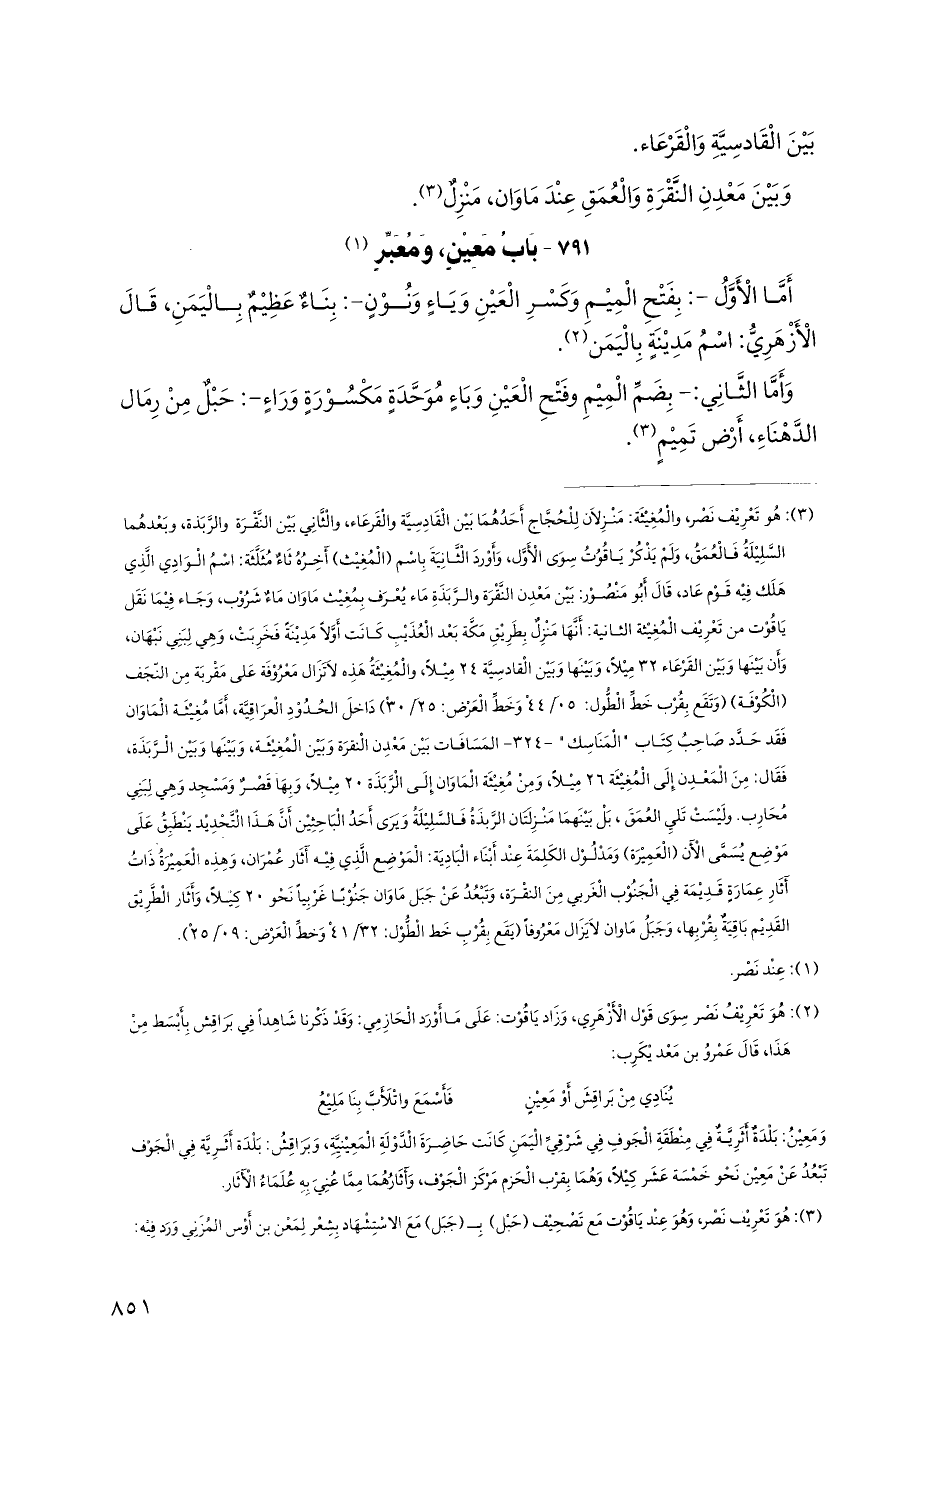 بَيْنَ الْقَادِسِيَّةِ وَالْقَرْعَاء.
وَبَيْنَ مَعْدِنِ النَّقْرَةِ وَالْعُمَقِ عِنْدَ مَاوَان، مَنْزِلٌ(٣).
٧٩١ - بَابُ مَعِيْنٍ، وَمُعَبِّرٍ (١)
أَمَّا الْأَوَّلُ -: بِفَتْحِ الْمِيْمِ وَكَسْرِ الْعَيْنِ وَيَاءٍ وَنُوْنٍ-: بِنَاءٌ عَظِيْمٌ بِالْيَمَنِ، قَالَ
الْأَزْهَرِيُّ: اسْمُ مَدِيْنَةٍ بِالْيَمَن(٢).
وَأَمَّا الثَّانِي:- بِضَمِّ الْمِيْمِ وفَتْحِ الْعَيْنِ وَبَاءٍ مُوَحَّدَةٍ مَكْسُوْرَةٍ وَرَاءٍ-: حَبْلٌ مِنْ رِمَال
الدَّهْنَاءِ، أَرْض تَمِيْمٍ(٣).
(٣): هُو تَعْرِيْف نَصْر، والْمُغِيْثَة: مَنْزِلاَن لِلْحُجَّاج أَحَدُهُمَا بَيْن الْقَادِسِيَّة والْقَرعَاء، والثَّانِي بَيْن النَّقْرَة والرَّبَذَة، وبَعْدهُما
السَّلِيْلَةُ فَالْعُمَقُ، وَلَمْ يَذْكُرْ يَاقُوْت سِوَى الأَوَّل، وأَوْرَد الثَّانِيَة بِاسْم (الْمُغِيْث) آخِرهُ ثَاءٌ مُثَلَّثَة: اسْمُ الْوَادِي الَّذِي
هَلَك فِيْه قَوْم عَاد، قَالَ أَبُو مَنْصُوْر: بَيْن مَعْدن النَّقْرَة والرَّبَذَة مَاء يُعْرَف بِمُغِيْث مَاوَان مَاءٌ شَرُوْب، وَجَاء فِيْمَا نَقَل
يَاقُوْت من تَعْرِيْف الْمُغِيْثَة الثانية: أَنَّهَا مَنْزِلٌ بِطَرِيْق مَكَّة بَعْد الْعُذَيْب كَانَت أَوَّلاً مَدِيْنَةً فَخَرِبَتْ، وَهِي لِبَنِي نَبْهَان،
وَأَن بَيْنَها وَبَيْن القَرْعَاء ٣٢ مِيْلاً، وَبَيْنَها وَبَيْن الْقَادسِيَّة ٢٤ مِيْلاً، والْمُغِيْثَةُ هَذِه لاَتَزَال مَعْرُوْفَة عَلَى مَقْرِبَة مِن النَّجَف
(الْكُوْفَة) (وَتَقَع بِقُرْب خَطِّ الْطُّول: ٠٥/ ٤٤ْ وَخَطِّ الْعَرْض: ٢٥/ ٣٠ْ) دَاخل الحُدُوْد العراقِيَّة، أَمَّا مُغِيْثَة الْمَاوَان
فَقَد حَدَّد صَاحِبُ كِتَاب "الْمَنَاسِك" -٣٢٤- الْمَسَافَات بَيْن مَعْدن النقرة وَبَيْن الْمُغِيْثَة، وَبَيْنَها وَبَيْن الرَّبَذَة،
فَقَال: مِنَ الْمَعْدن إِلَى الْمُغِيْثَة ٢٦ مِيْلاً، وَمِنْ مُغِيْثَة الْمَاوَان إِلَى الرَّبَذَة ٢٠ مِيْلاً، وَبِهَا قَصْرٌ وَمَسْجِد وَهِي لِبَنِي
مُحَارِب. ولَيْسَتْ تَلي العُمَق ، بَلْ بَيْنَهمَا مَنْزِلَتَان الرَّبَذَةُ فَالسَّلِيْلَةُ وَيَرى أَحَدُ الْبَاحِثِيْن أَنَّ هَذَا التَّحْدِيْد يَنْطَبِقُ عَلَى
مَوْضِع يُسَمَّى الآن (الْعَمِيْرَة) وَمَدْلُوْل الكَلِمَة عِنْد أَبْنَاء الْبَادِيَة: الْمَوْضِع الَّذِي فِيْه آثَار عُمْرَان، وَهَذِه الْعَمِيْرَةُ ذَاتُ
آثَارِ عِمَارَةٍ قَدِيْمَة فِي الْجَنُوْب الْغَربي مِنَ النقْرَة، وَتَبْعُدُ عَنْ جَبَل مَاوان جَنُوْبًا غَرْبِياً نَحْو ٢٠ كِيْلاً، وَآثار الْطَّرِيْق
القَدِيْم بَاقِيَةٌ بِقُرْبِها، وَجَبَلُ مَاوان لاَيَزَال مَعْرُوفاً (يَقَع بِقُرْب خَط الْطُّوْل: ٣٢/ ٤١ْ وَخطِّ العَرْض: ٠٩/ ٢٥ْ).
(١): عِنْد نَصْر.
(٢): هُوَ تَعْرِيْفُ نَصْر سِوَى قَوْل الْأَزْهَرِي، وَزَاد يَاقُوْت: عَلَى مَاأَوْرَد الْحَازِمي: وَقَدْ ذَكَرْنا شَاهِداً فِي بَرَاقِش بِأَبْسَط مِنْ
هَذَا، قَالَ عَمْرُو بن مَعْد يْكَرِب:
يُنَادِي مِنْ بَرَاقِشَ أَوْ مَعِيْنٍ فَأَسْمَعَ واتْلَأَبَّ بِنَا مَلِيْعُ
وَمَعِيْنُ: بَلْدَةٌ أَثَرِيَّةٌ فِي مِنْطَقَةِ الْجَوفِ فِي شَرْقِيِّ الْيَمَنِ كَانَت حَاضِرَةَ الدَّوْلَةِ الْمَعِيْنِيَّةِ، وَبَرَاقِشُ: بَلْدَة أَثَرِيَّة فِي الْجَوْف
تَبْعُدُ عَنْ مَعِيْن نَحْوِ خَمْسَة عَشَر كِيْلاً، وَهُمَا بِقرْب الْحَزم مَرْكَز الْجَوْف، وَآثَارُهُمَا مِمَّا عُنِيَ بِهِ عُلَمَاءُ الْآثَار.
(٣): هُوَ تَعْرِيْف نَصْر، وَهُوَ عِنْد يَاقُوْت مَع تَصْحِيْف (حَبْل) بِـ (جَبَل) مَعَ الاسْتِشْهَاد بِشِعْر لِمَعْن بن أَوْس الْمُزَنِي وَرَد فِيْه:
٨٥١